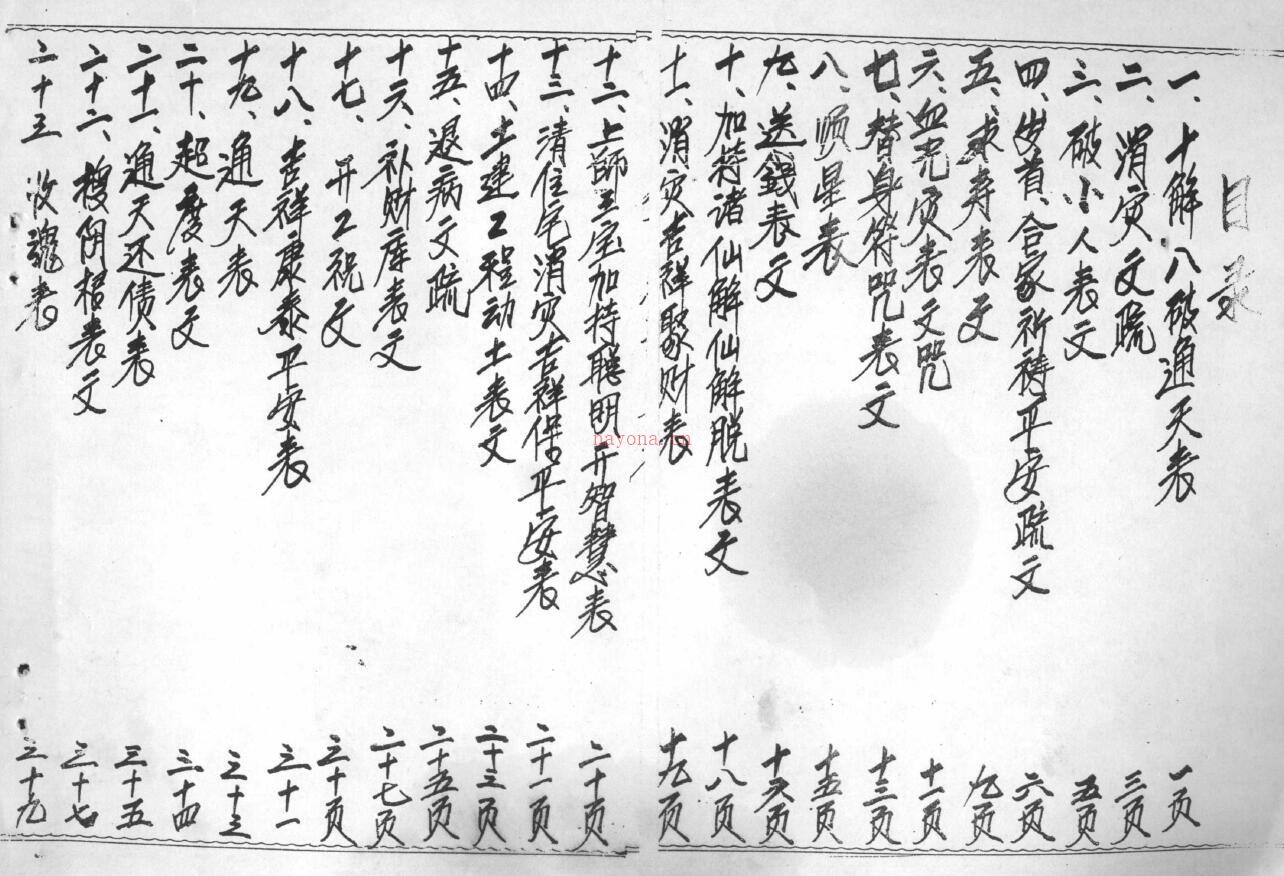 目录
一、十解八破通天表 一页
二、消灾文疏 三页
三、破小人表文 五页
四、安首、合家祈祷平安疏文 六页
五、求寿表文 九页
六、血光灾表文咒 十一页
七、替身符咒表文 十三页
八、顺星表 十五页
九、送錢表文 十六页
十、加持诸仙解仙解脱表文 十八页
十一、消灾吉祥聚财表 十九页
十二、上師三宝加持聪明开智慧表 二十页
十三、清住宅消灾吉祥保平安表 二十一页
十四、土建工程动土表文 二十三页
十五、退病文疏 二十五页
十六、补财库表文 二十七页
十七、开工祝文 三十页
十八、吉祥康泰平安表 三十一
十九、通天表 三十三
二十、超度表文 三十四
二十一、通天还债表 三十五
二十二、阴根表文 三十七
二十三 收魂表 三十九
nayona.cn